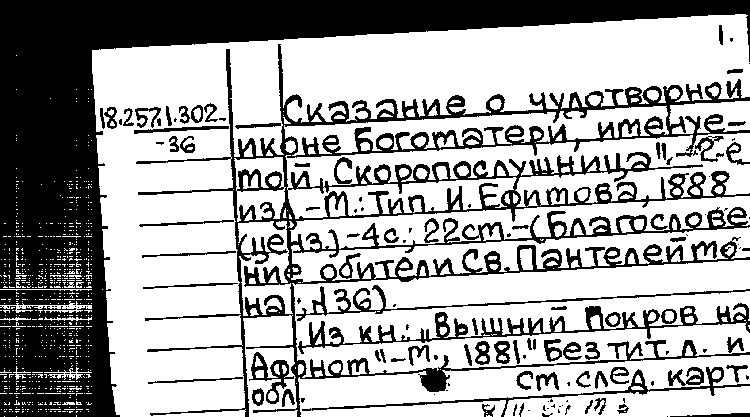 1.
18.257.1.302-
-36
Сказание о чудотворной
иконе Богоматери, именуе-
мой „Скоропослушница".-2-е
изд.-М.: Тип. И. Ефимова, 1888
(ценз.)-4с.; 22см.-(Благослове
ние обители Св. Пантелеймо-
на; №36).
Из кн.: „Вышний Покров на
Афоном".-М., 1881." Без тит. л. и
обл.
См. след. карт.